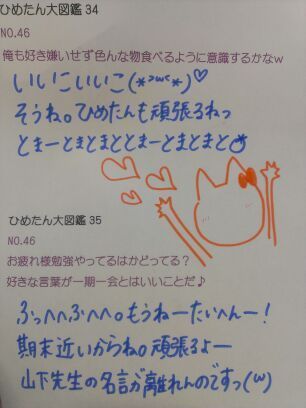 ひめたん大図鑑 34
NO.46
俺も好き嫌いせず色んな物食べるように意識するかなw
いいこいいこ(*˃ᵕ˂*)♡
そうね。ひめたんも頑張るねっ
とまーとまとまととまーとまとまと
ひめたん大図鑑 35
NO.46
お疲れ様勉強やってるはかどってる？
好きな言葉が一期一会とはいいことだ♪
ふっへへふへへ。もうねーたいへんー!
期末近いからね。頑張るよー
山下先生の名言が離れんのですっ(w)